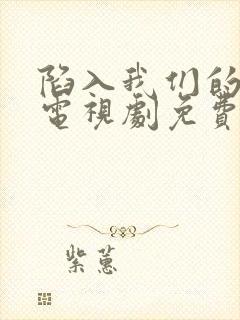 陷入我们的
電視劇免費
紫蕙